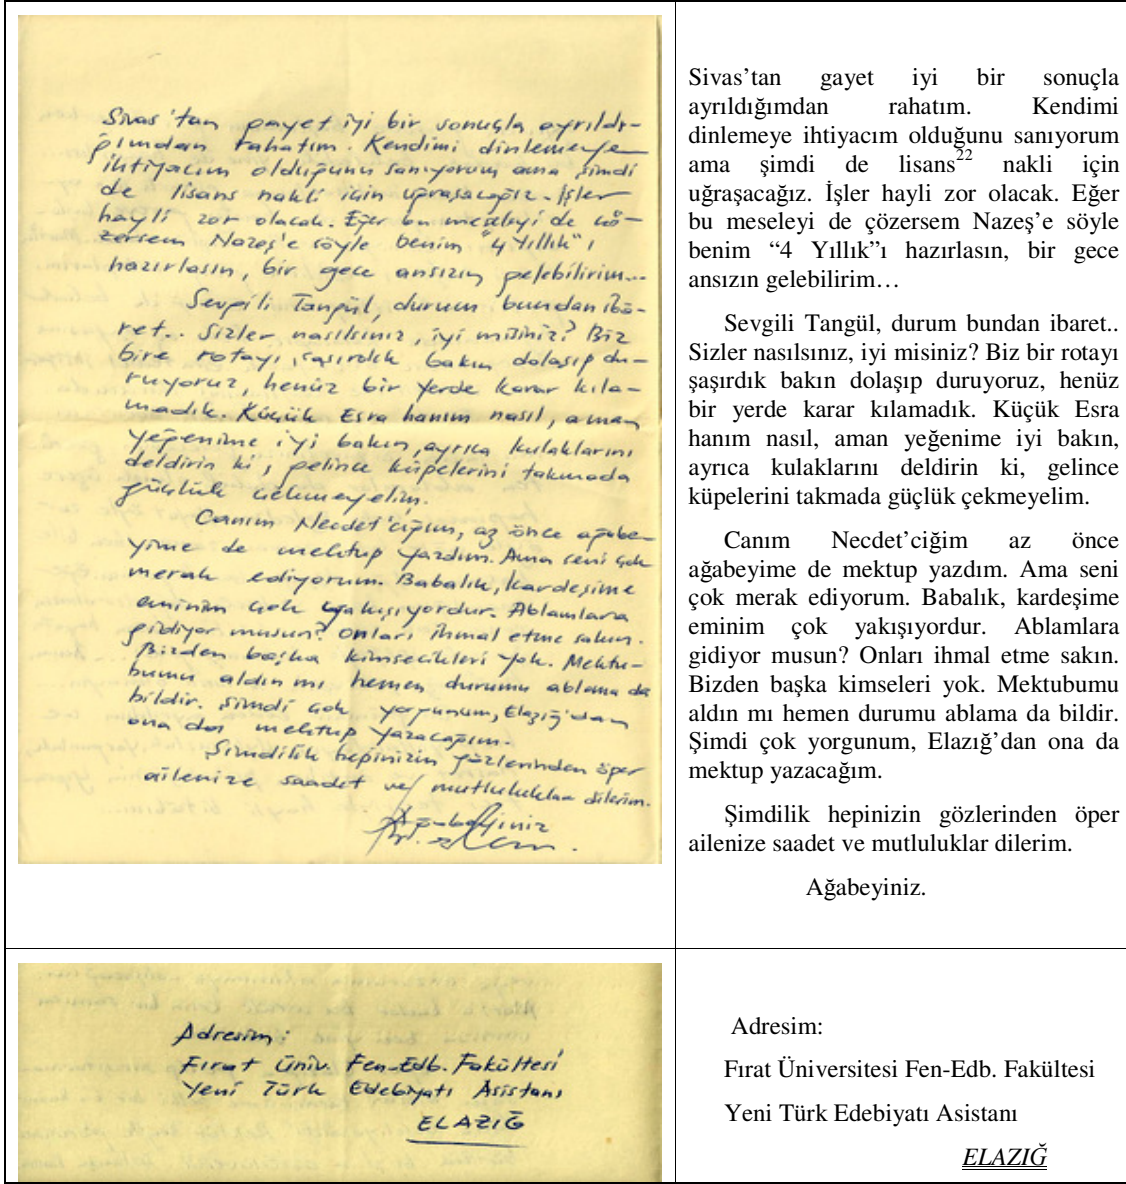 Sivas'tan gayet iyi bir sonuçla ayrıldı-
ğımdan rahatım. Kendimi dinlemeye
ihtiyacım olduğunu sanıyorum ama şimdi
de lisans nakli için uğraşacağız. İşler
hayli zor olacak. Eğer bu meseleyi de çö-
zersem Nazeş'e söyle benim "4 Yıllık"ı
hazırlasın, bir gece ansızın gelebilirim...
Sevgili Tangül, durum bundan iba-
ret.. Sizler nasılsınız, iyi misiniz? Biz
bire rotayı şaşırdık bakın dolaşıp du-
ruyoruz, henüz bir yerde karar kıla-
madık. Küçük Esra hanım nasıl, aman
yeğenime iyi bakın, ayrıca kulaklarını
deldirin ki, gelince küpelerini takmada
güçlük çekmeyelim.
Canım Necdet'ciğim, az önce ağabe-
yime de mektup yazdım. Ama seni çok
merak ediyorum. Babalık, kardeşime
eminim çok yakışıyordur. Ablamlara
gidiyor musun? Onları ihmal etme sakın.
Bizden başka kimsecikleri yok. Mektu-
bumu aldın mı hemen durumu ablama da
bildir. Şimdi çok yorgunum, Elazığ'dan
ona da mektup yazacağım.
Şimdilik hepinizin gözlerinden öper
ailenize saadet ve mutluluklar dilerim.
Ağabeyiniz
Sivas'tan gayet iyi bir sonuçla
ayrıldığımdan rahatım. Kendimi
dinlemeye ihtiyacım olduğunu sanıyorum
ama şimdi de lisans22 nakli için
uğraşacağız. İşler hayli zor olacak. Eğer
bu meseleyi de çözersem Nazeş'e söyle
benim “4 Yıllık”ı hazırlasın, bir gece
ansızın gelebilirim…
Sevgili Tangül, durum bundan ibaret..
Sizler nasılsınız, iyi misiniz? Biz bir rotayı
şaşırdık bakın dolaşıp duruyoruz, henüz
bir yerde karar kılamadık. Küçük Esra
hanım nasıl, aman yeğenime iyi bakın,
ayrıca kulaklarını deldirin ki, gelince
küpelerini takmada güçlük çekmeyelim.
Canım Necdet'ciğim az önce
ağabeyime de mektup yazdım. Ama seni
çok merak ediyorum. Babalık, kardeşime
eminim çok yakışıyordur. Ablamlara
gidiyor musun? Onları ihmal etme sakın.
Bizden başka kimseleri yok. Mektubumu
aldın mı hemen durumu ablama da bildir.
Şimdi çok yorgunum, Elazığ'dan ona da
mektup yazacağım.
Şimdilik hepinizin gözlerinden öper
ailenize saadet ve mutluluklar dilerim.
Ağabeyiniz.
Adresim:
Fırat Üniv. Fen-Edb. Fakültesi
Yeni Türk Edebiyatı Asistanı
ELAZIĞ
Adresim:
Fırat Üniversitesi Fen-Edb. Fakültesi
Yeni Türk Edebiyatı Asistanı
ELAZIĞ